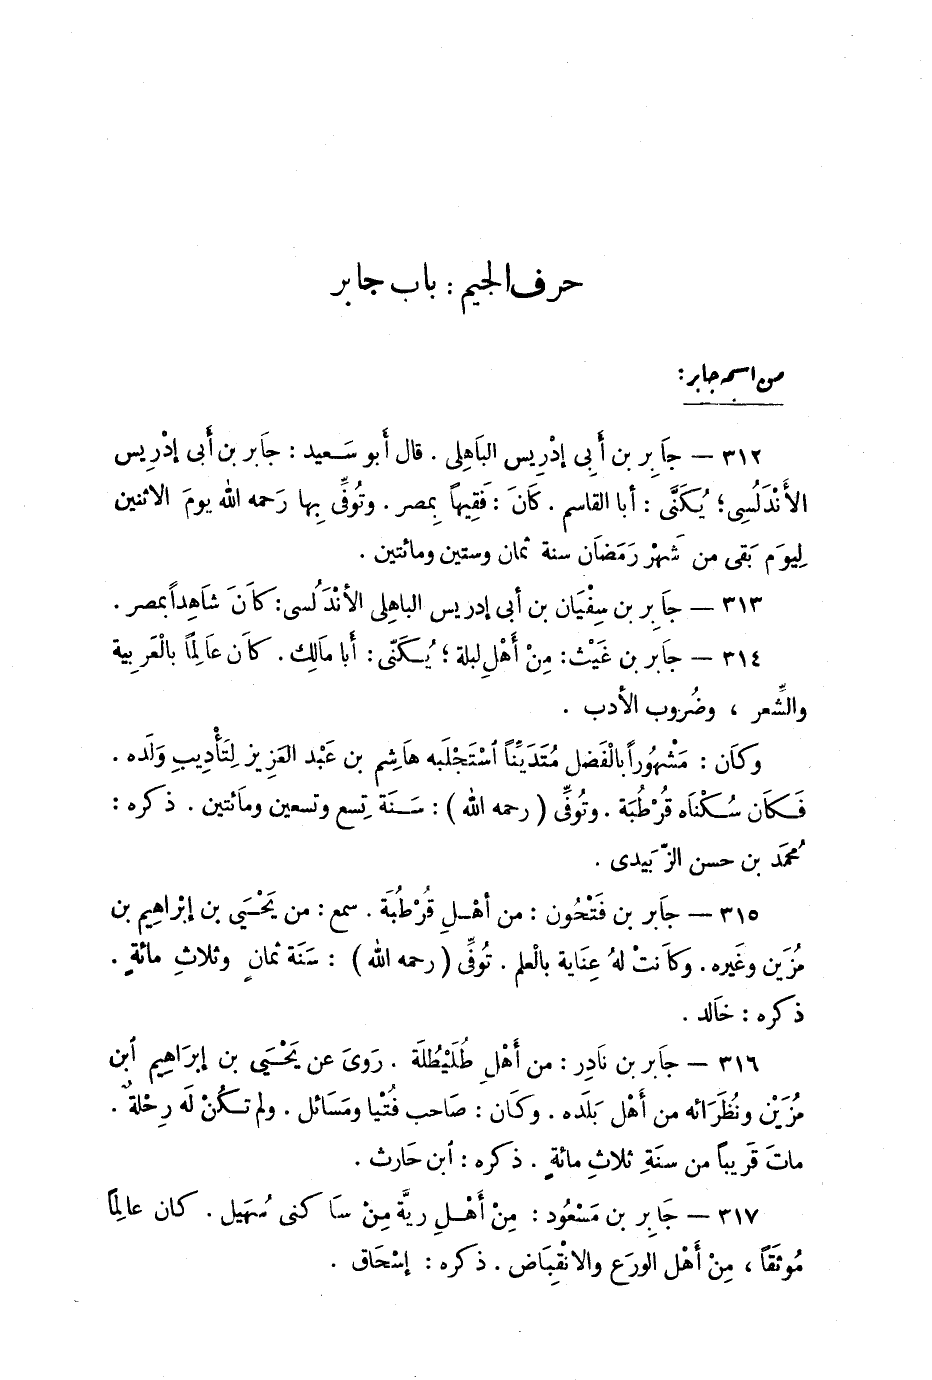 حرف الجيم : باب جابر
من اسمه جابر :
٣١٢ — جَابِر بن أَبِى إدْرِيس البَاهِلى . قال أَبو سَعيد : جَابر بن أَبى إدْرِيس
الأَنْدَلُسِى؛ يُكَنَّى : أبا القاسم . كَانَ : فَقِيهاً بِمصر . وتُوفِّى بِها رَحمه الله يومَ الاثنين
لِيوَم بَقى من شَهْر رَمَضَان سنة ثمان وستين ومائتين .
٣١٣ — جَابِر بن سِفْيَان بن أبى إدريس الباهلى الأنْدَلُسى: كَانَ شَاهِداً بمصر .
٣١٤ — جَابر بن غَيْث: مِنْ أَهْلِ لبلة ؛ يُكَنّى : أَبا مَالِك . كَان عَالِماً بالْعَربية
والشِّعر ، وضُروب الأدب .
وكَان : مَشْهُوراً بالْفَضل مُتَدَيِّناً اُسْتَجْلَبه هَاشِم بن عَبْد العَزِيز لِتَأْدِيبِ وَلَده .
فَكَان سُكْنَاه قُرْطُبَة . وتُوفِّى ( رحمه الله ) : سَنَة تِسع وتسعين ومَائتين . ذكره :
مُحمَّد بن حسن الزُّبَيدى .
٣١٥ — جَابر بن فَتْحُون : من أهْلِ قُرْطُبَة . سمع : من يَحْيَي بن إبْراهِيم بن
مُزَين وغَيره . وكَانتْ لهُ عِنَاية بالْعلم . تُوفِّى ( رحمه الله ) : سَنَة ثمانٍ وثلاثِ مائةٍ .
ذكره : خَالد .
٣١٦ — جَابر بن نَادِر : من أَهْلِ طُلَيْطُلَة . رَوىَ عن يَحْيَي بن إبرَاهِيم اُبن
مُزَيْن ونُظَرَائه من أَهْل بَلَده . وكَان : صَاحب فُتْيا ومَسَائل . ولم تَكُنْ لَه رِحْلةٌ .
ماتَ قَريباً من سنَةِ ثلاثِ مائةٍ . ذكره : اُبن حَارث .
٣١٧ — جَابِر بن مَسْعُود : مِنْ أَهْلِ ريَّة مِنْ سَاكنى سُهَيل . كَان عالِماً
مُوثَقاً ، مِنْ أَهْل الورَع والانْقِبَاض . ذكره : إسْحَاق .